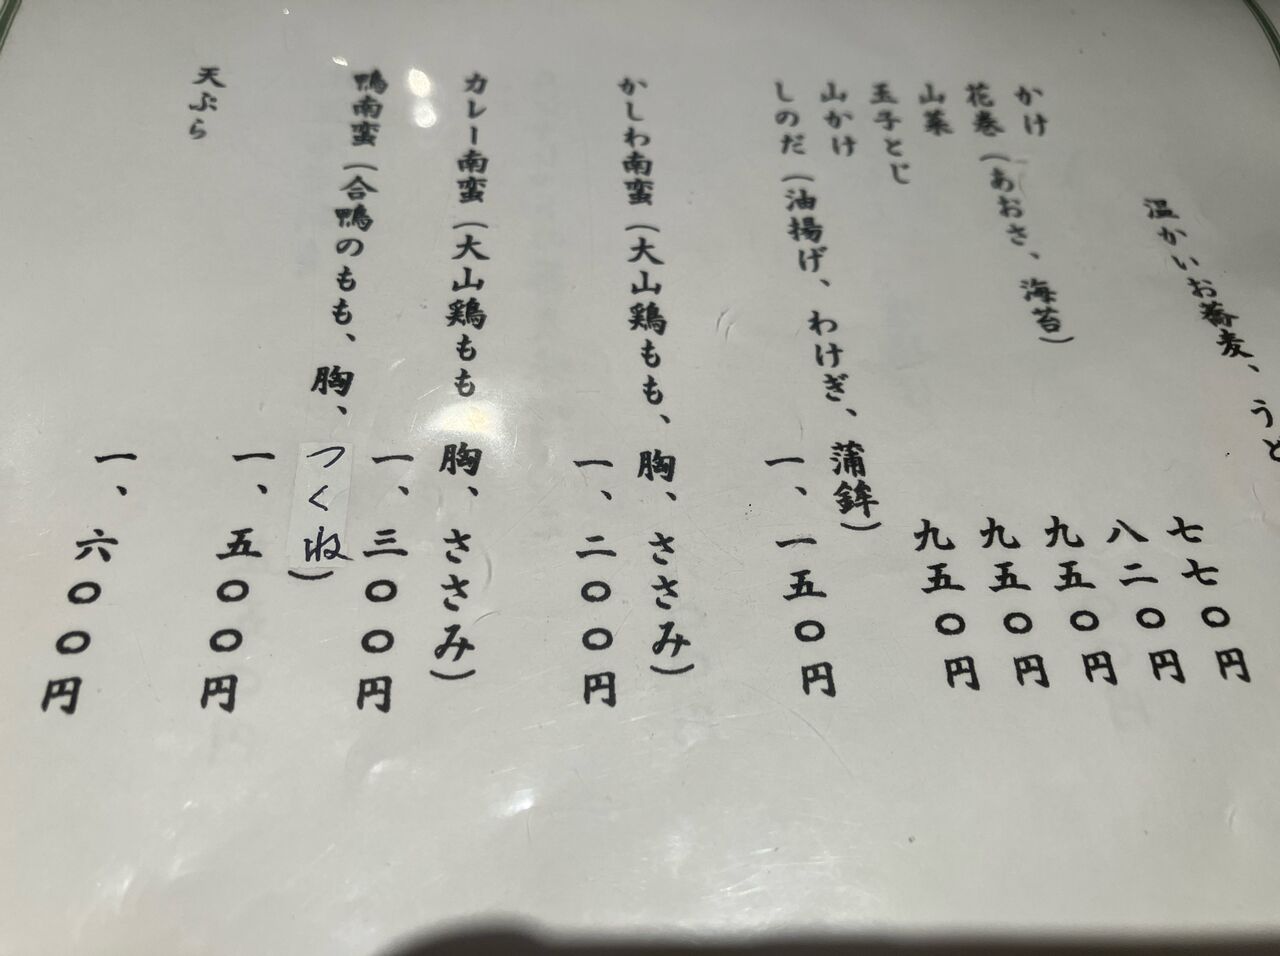 温かいお蕎麦、うど
かけ 七七〇円
花巻(あおさ、海苔) 八二〇円
山菜 九五〇円
玉子とじ 九五〇円
山かけ 九五〇円
しのだ(油揚げ、わけぎ、蒲鉾) 一、一五〇円
かしわ南蛮(大山鶏もも、胸、ささみ) 一、二〇〇円
カレー南蛮(大山鶏もも 胸、ささみ) 一、三〇〇円
鴨南蛮(合鴨のもも、胸、つくね) 一、五〇〇円
天ぷら 一、六〇〇円